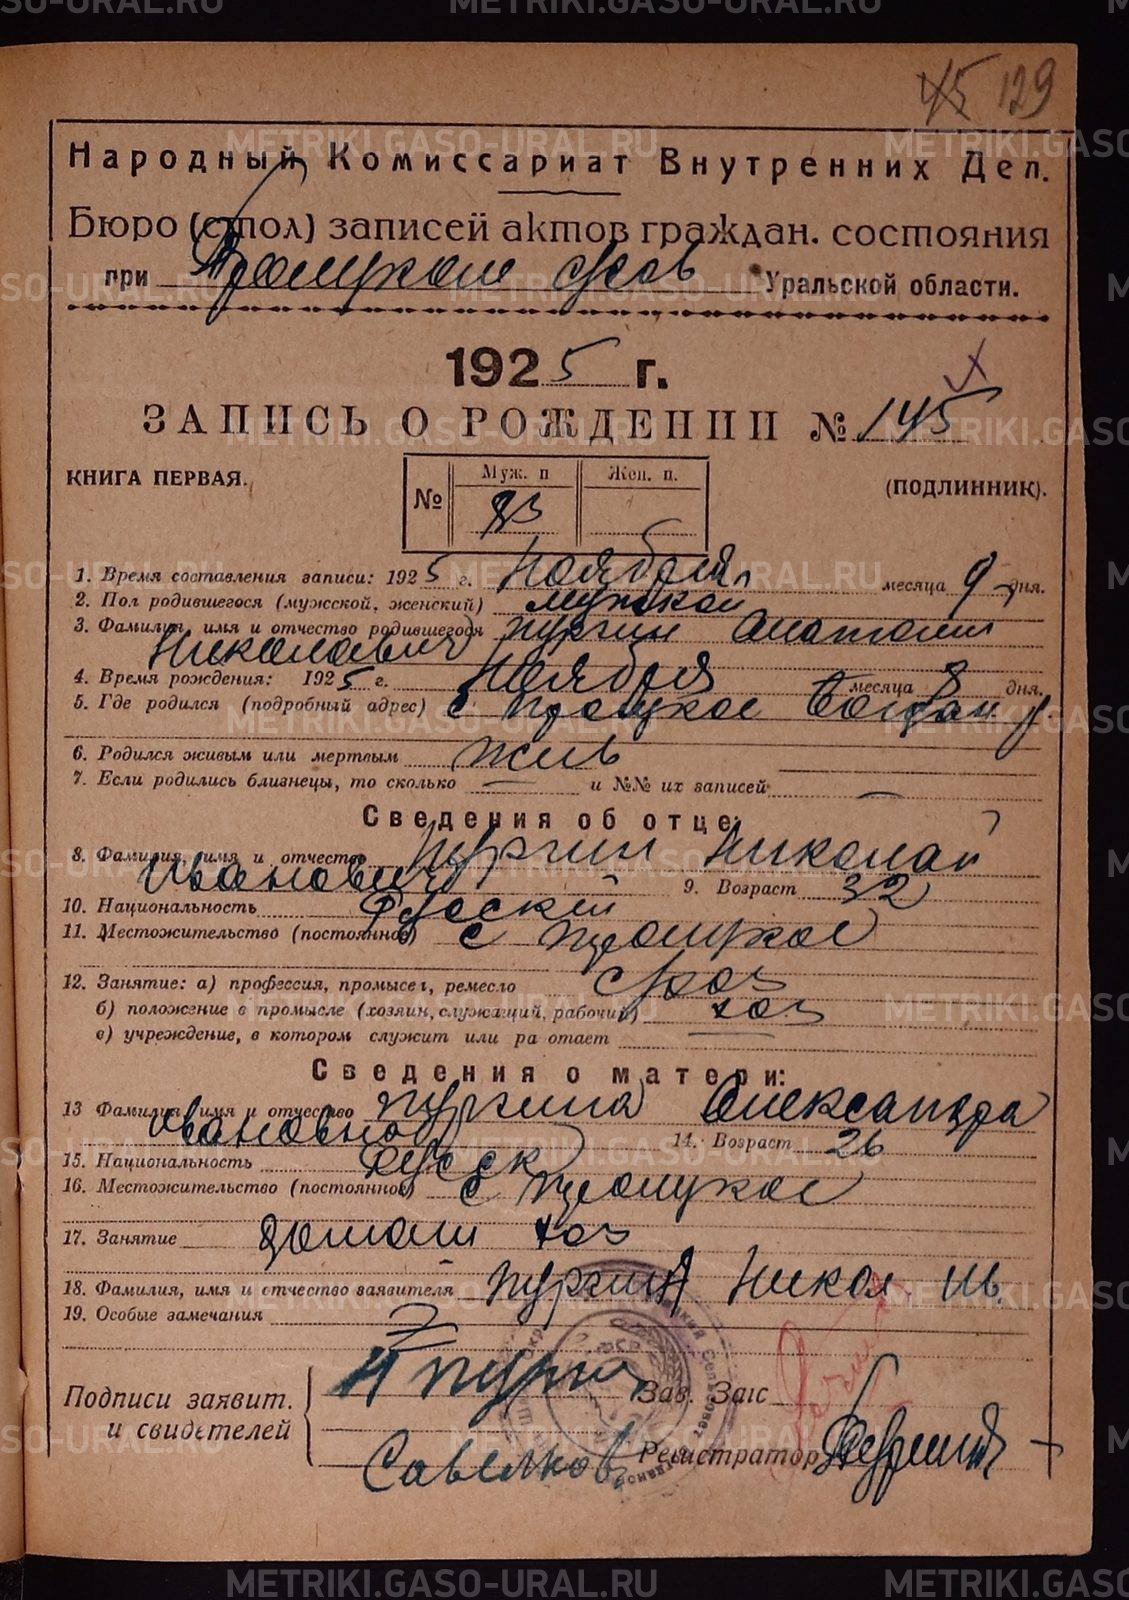 45 129
Народный Комиссариат Внутренних Дел.
Бюро (стол) записей актов граждан. состояния
при Троицком с/сов Уральской области.
1925 г.
ЗАПИСЬ О РОЖДЕНИИ № 145
КНИГА ПЕРВАЯ.
№ Муж. п Жен. п.
(ПОДЛИННИК).
1. Время составления записи: 1925 г. Ноября месяца 9 дня.
2. Пол родившегося (мужской, женский) мужской
3. Фамилия, имя и отчество родившегося Пургин Анатолий
Николаевич
4. Время рождения: 1925 г. Ноября месяца 8 дня.
5. Где родился (подробный адрес) с Троицкое
6. Родился живым или мертвым жив
7. Если родились близнецы, то сколько — и №№ их записей —
Сведения об отце:
8. Фамилия, имя и отчество Пургин Николай
Иванович 9. Возраст 32
10. Национальность Русский
11. Местожительство (постоянное) с Троицкое
12. Занятие: а) профессия, промысел, ремесло
б) положение в промысле (хозяин, служащий, рабочий) хоз
в) учреждение, в котором служит или ра отает —
Сведения о матери:
13 Фамилия, имя и отчество Пургина Александра
Ивановна 14. Возраст 26
15. Национальность Русск
16. Местожительство (постоянное) с Троицкое
17. Занятие домаш хоз
18. Фамилия, имя и отчество заявителя Пургин Никол Ив.
19. Особые замечания
Подписи заявит. Н Пурги Зав. Загс
и свидетелей Савелков Регистратор
METRIKI.GASO-URAL.RU